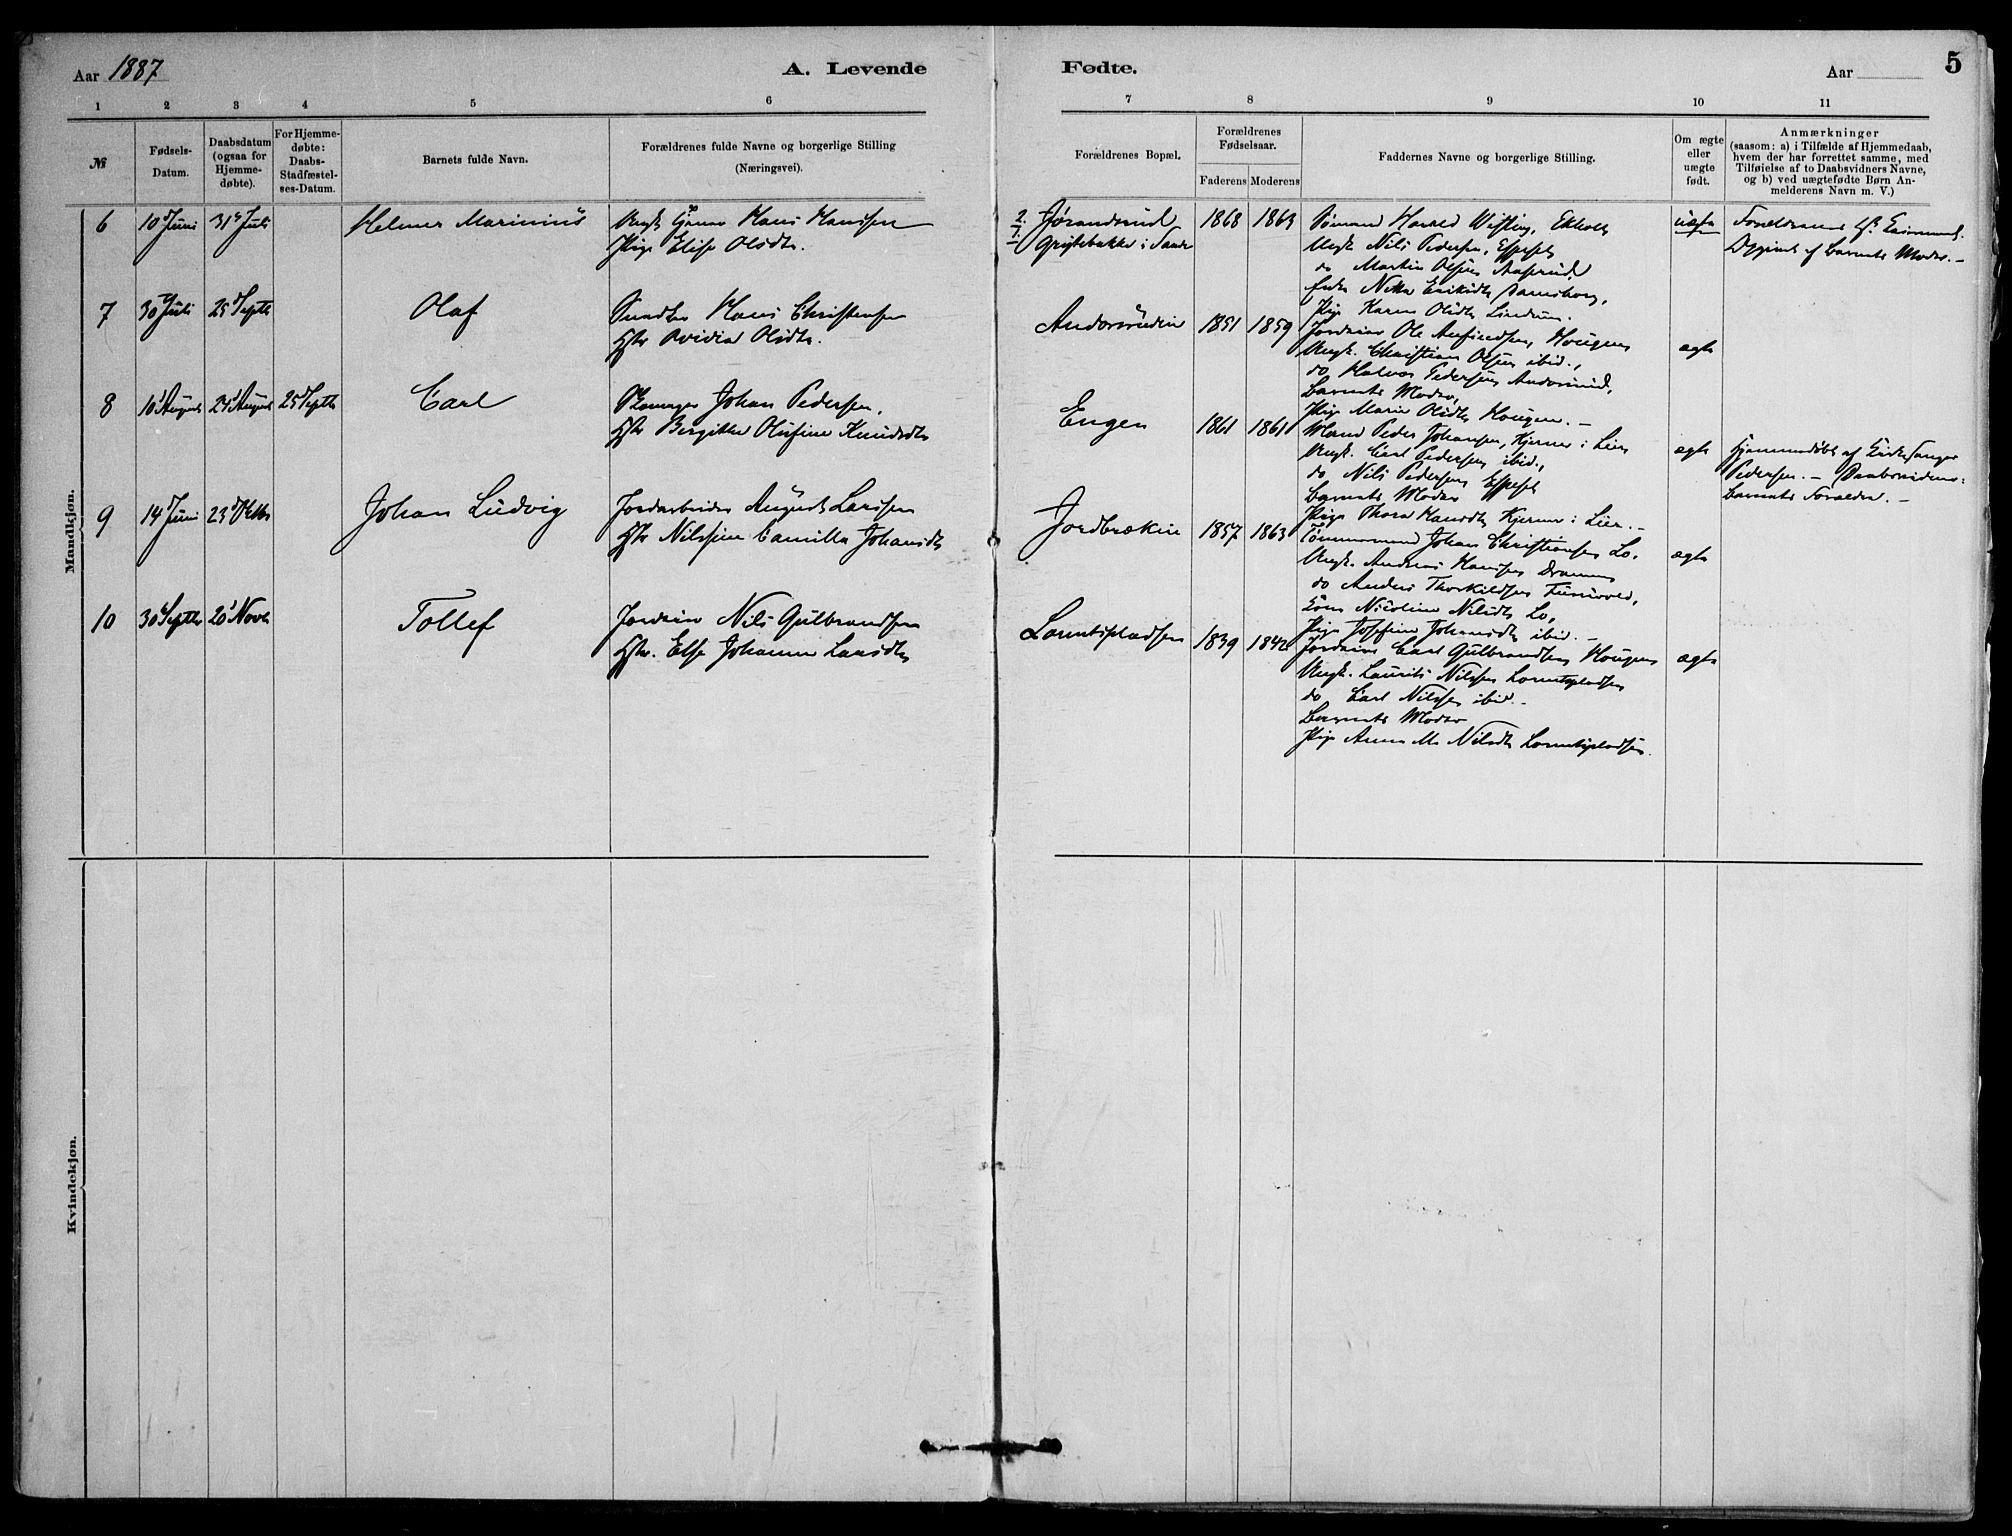 Aar 1887
A. Levende
Fødte.
Aar
5
1 2 3 4 5 6 7 8 9 10 11
№
Fødsels-
Datum.
Daabsdatum
(ogsaa for
Hjemme-
døbte).
For Hjemme-
døbte:
Daabs-
Stadfæstel-
ses-Datum.
Barnets fulde Navn.
Forældrenes fulde Navne og borgerlige Stilling
(Næringsvei).
Forældrenes Bopæl.
Forældrenes
Fødselsaar.
Faderens Moderens
Faddernes Navne og borgerlige Stilling.
Om ægte
eller
uægte
født.
Anmærkninger
(saasom: a) i Tilfælde af Hjemmedaab,
hvem der har forrettet samme, med
Tilføielse af to Daabsvidners Navne,
og b) ved uægtefødte Børn An-
melderens Navn m. V.)
Mandkjøn.
6 10 Juni 31 Juli Helmer Marinius
Ungk. Hans Hanssen
Pige Elise Olsdtr.
Jørandsrud
i Sande
1868 1863
Sømand Harald Wisting, Ekholt
Ungk. Nils Pedersen, Espeset
do Martin Olsen Aaserud
Enke
Pige Karen Olsdtr Lindum.
uægte
Forældrenes
af Barnets Moder. –
7 30 Juli 25 Septbr Olaf
Hans Christensen
Hstr Olsdtr.
Andorsrudeie
1851 1859
Jordeier Ole Anfindsen, Hougen
Ungk. Christian Olsen ibid.,
do Halvor Pedersen Andorsrud,
Barnets Moder,
Pige Marie Olsdtr Hougen. –
ægte
8 10 August 24 August 25 Septbr Carl
Skomager Johan Pedersen,
Hstr Birgitte Olufine Knudsdtr
Engen
1861 1861
Mand Peder Johansen, Kjerner i Lier
Ungk. Carl Pedersen ibid.,
do Nils Pedersen Espeset
Barnets Moder
Pige Thora Hansdtr Kjerner i Lier. –
ægte
Hjemmedøbt af Kirkesanger
Pedersen. – Daabsvidner:
Barnets Forældre. –
9 14 Juni 23 Oktbr Johan Ludvig
Jordarbeider August Larssen
Hstr Nilssine Camilla Johansdtr
Jordbrækeie
1857 1863
Tømmermand Johan Christiansen Lo.
Ungk. Andreas Hanssen Drammen
do Anders Thorkildsen
Nicoline Nilsdtr Lo,
Pige Josefine Johansdtr ibid. –
ægte
10 30 Septbr 20 Novbr Tollef
Jordeier Nils Gulbrandsen
Hstr. Else Johanne Larsdtr
Lorentspladsen
1839 1842
Jordeier Carl Gulbrandsen, Hougen
Ungk. Laurits Nilssen Lorentspladsen
do Carl Nilssen ibid. –
Barnets Moder
Pige Anne M. Nilsdtr Lorentspladsen.
ægte
Kvindekjøn.